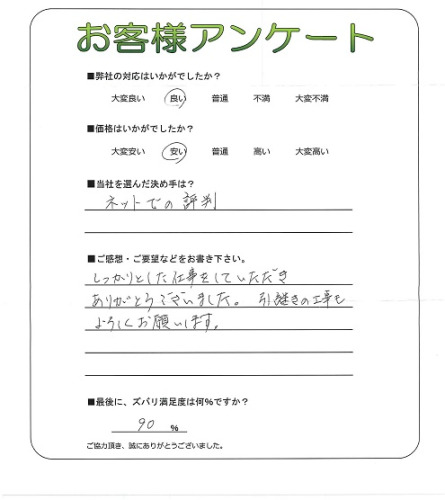 お客様アンケート
■弊社の対応はいかがでしたか？
大変良い 良い 普通 不満 大変不満
■価格はいかがでしたか？
大変安い 安い 普通 高い 大変高い
■当社を選んだ決め手は？
ネットでの評判
■ご感想・ご要望などをお書き下さい。
しっかりとした仕事をしていただき
ありがとうございました。 引継きの工事も
よろしくお願いします。
■最後に、ズバリ満足度は何%ですか？
90 %
ご協力頂き、誠にありがとうございました。